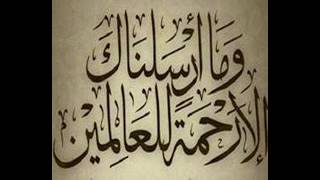 وَمَا أَرْسَلْنَاكَ
إِلَّا رَحْمَةً لِلْعَالَمِينَ